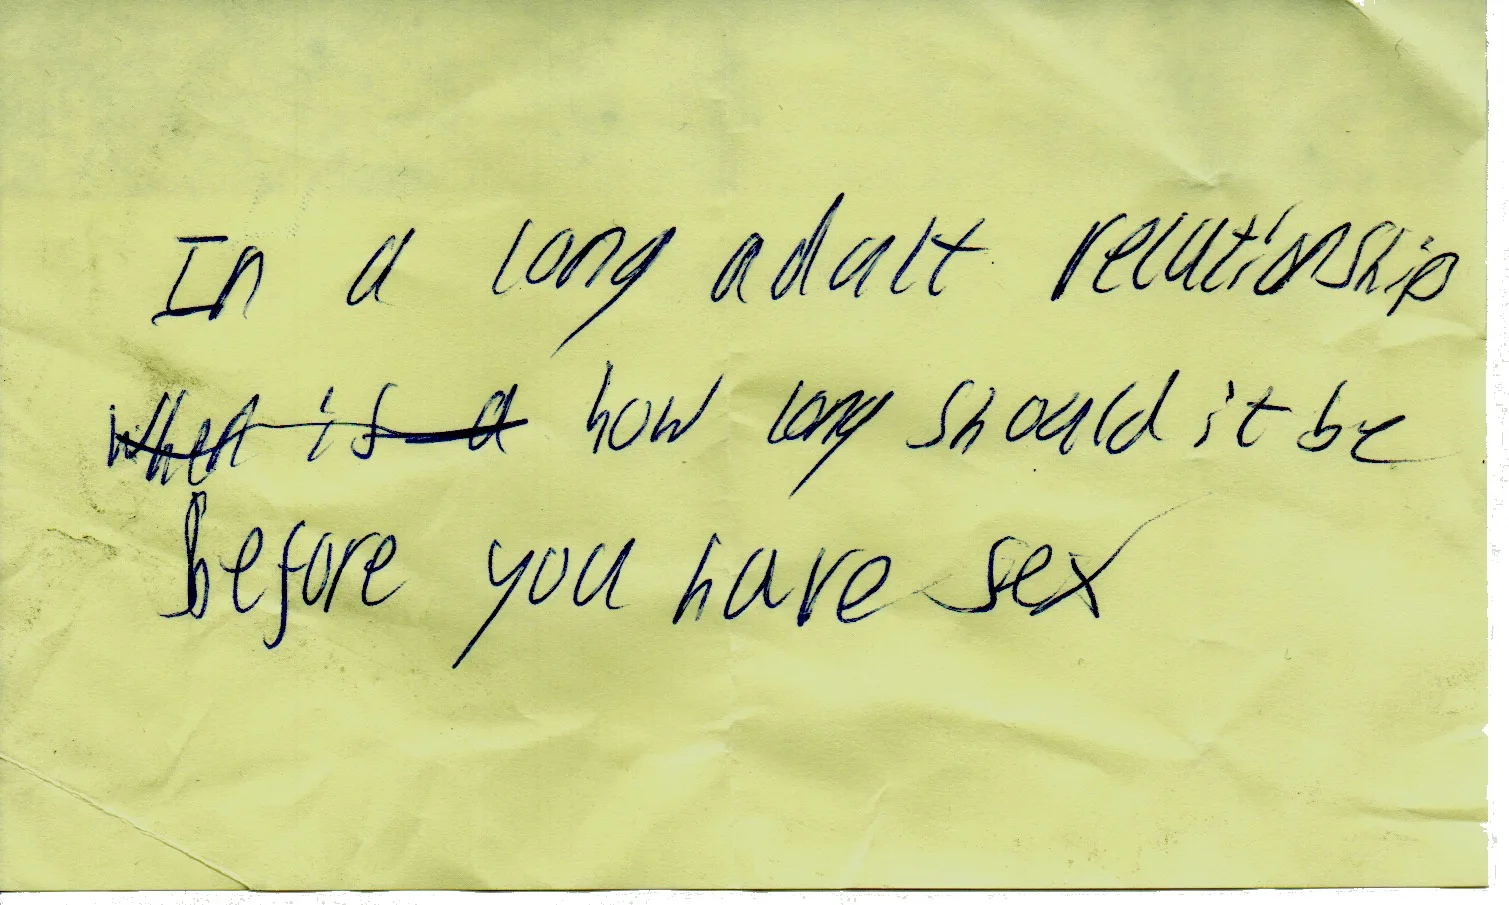 In a long adult relationship
when is a how long should it be
before you have sex